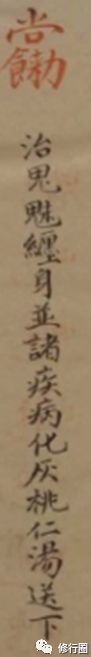 治鬼魅纏身並諸疾病化灰桃仁湯送下
修行圈